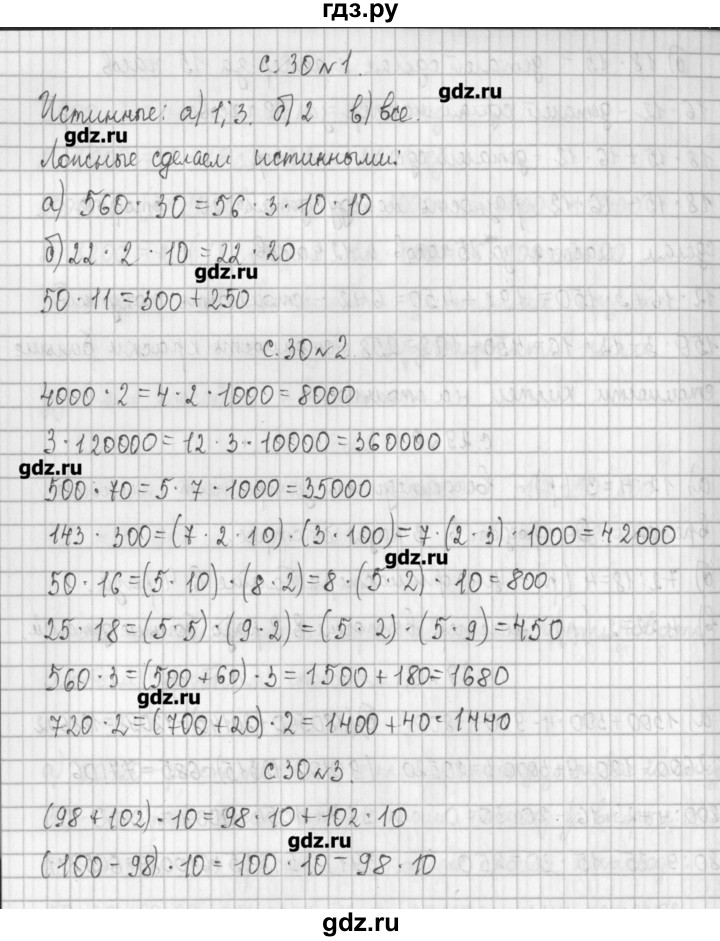 гдз.ру
с. 30 №1.
Истинные: а) 1; 3. б) 2 в) все.
gdz.ru
gdz.ru
Ложные сделаем истинными:
а) 560 · 30 = 56 · 3 · 10 · 10
б) 22 · 2 · 10 = 22 · 20
gdz.ru
50 · 11 = 300 + 250
с. 30 №2.
4000 · 2 = 4 · 2 · 1000 = 8000
3 · 120000 = 12 · 3 · 10000 = 360000
gdz.ru
500 · 70 = 5 · 7 · 1000 = 35000
143 · 300 = (7 · 2 · 10) · (3 · 100) = 7 · (2 · 3) · 1000 = 42000
gdz.ru
50 · 16 = (5 · 10) · (8 · 2) = 8 · (5 · 2) · 10 = 800
25 · 18 = (5 · 5) · (9 · 2) = (5 · 2) · (5 · 9) = 450
560 · 3 = (500 + 60) · 3 = 1500 + 180 = 1680
gdz.ru
720 · 2 = (700 + 20) · 2 = 1400 + 40 = 1440
с. 30 №3.
(98 + 102) · 10 = 98 · 10 + 102 · 10
gdz.ru
(100 - 98) · 10 = 100 · 10 - 98 · 10
gdz.ru